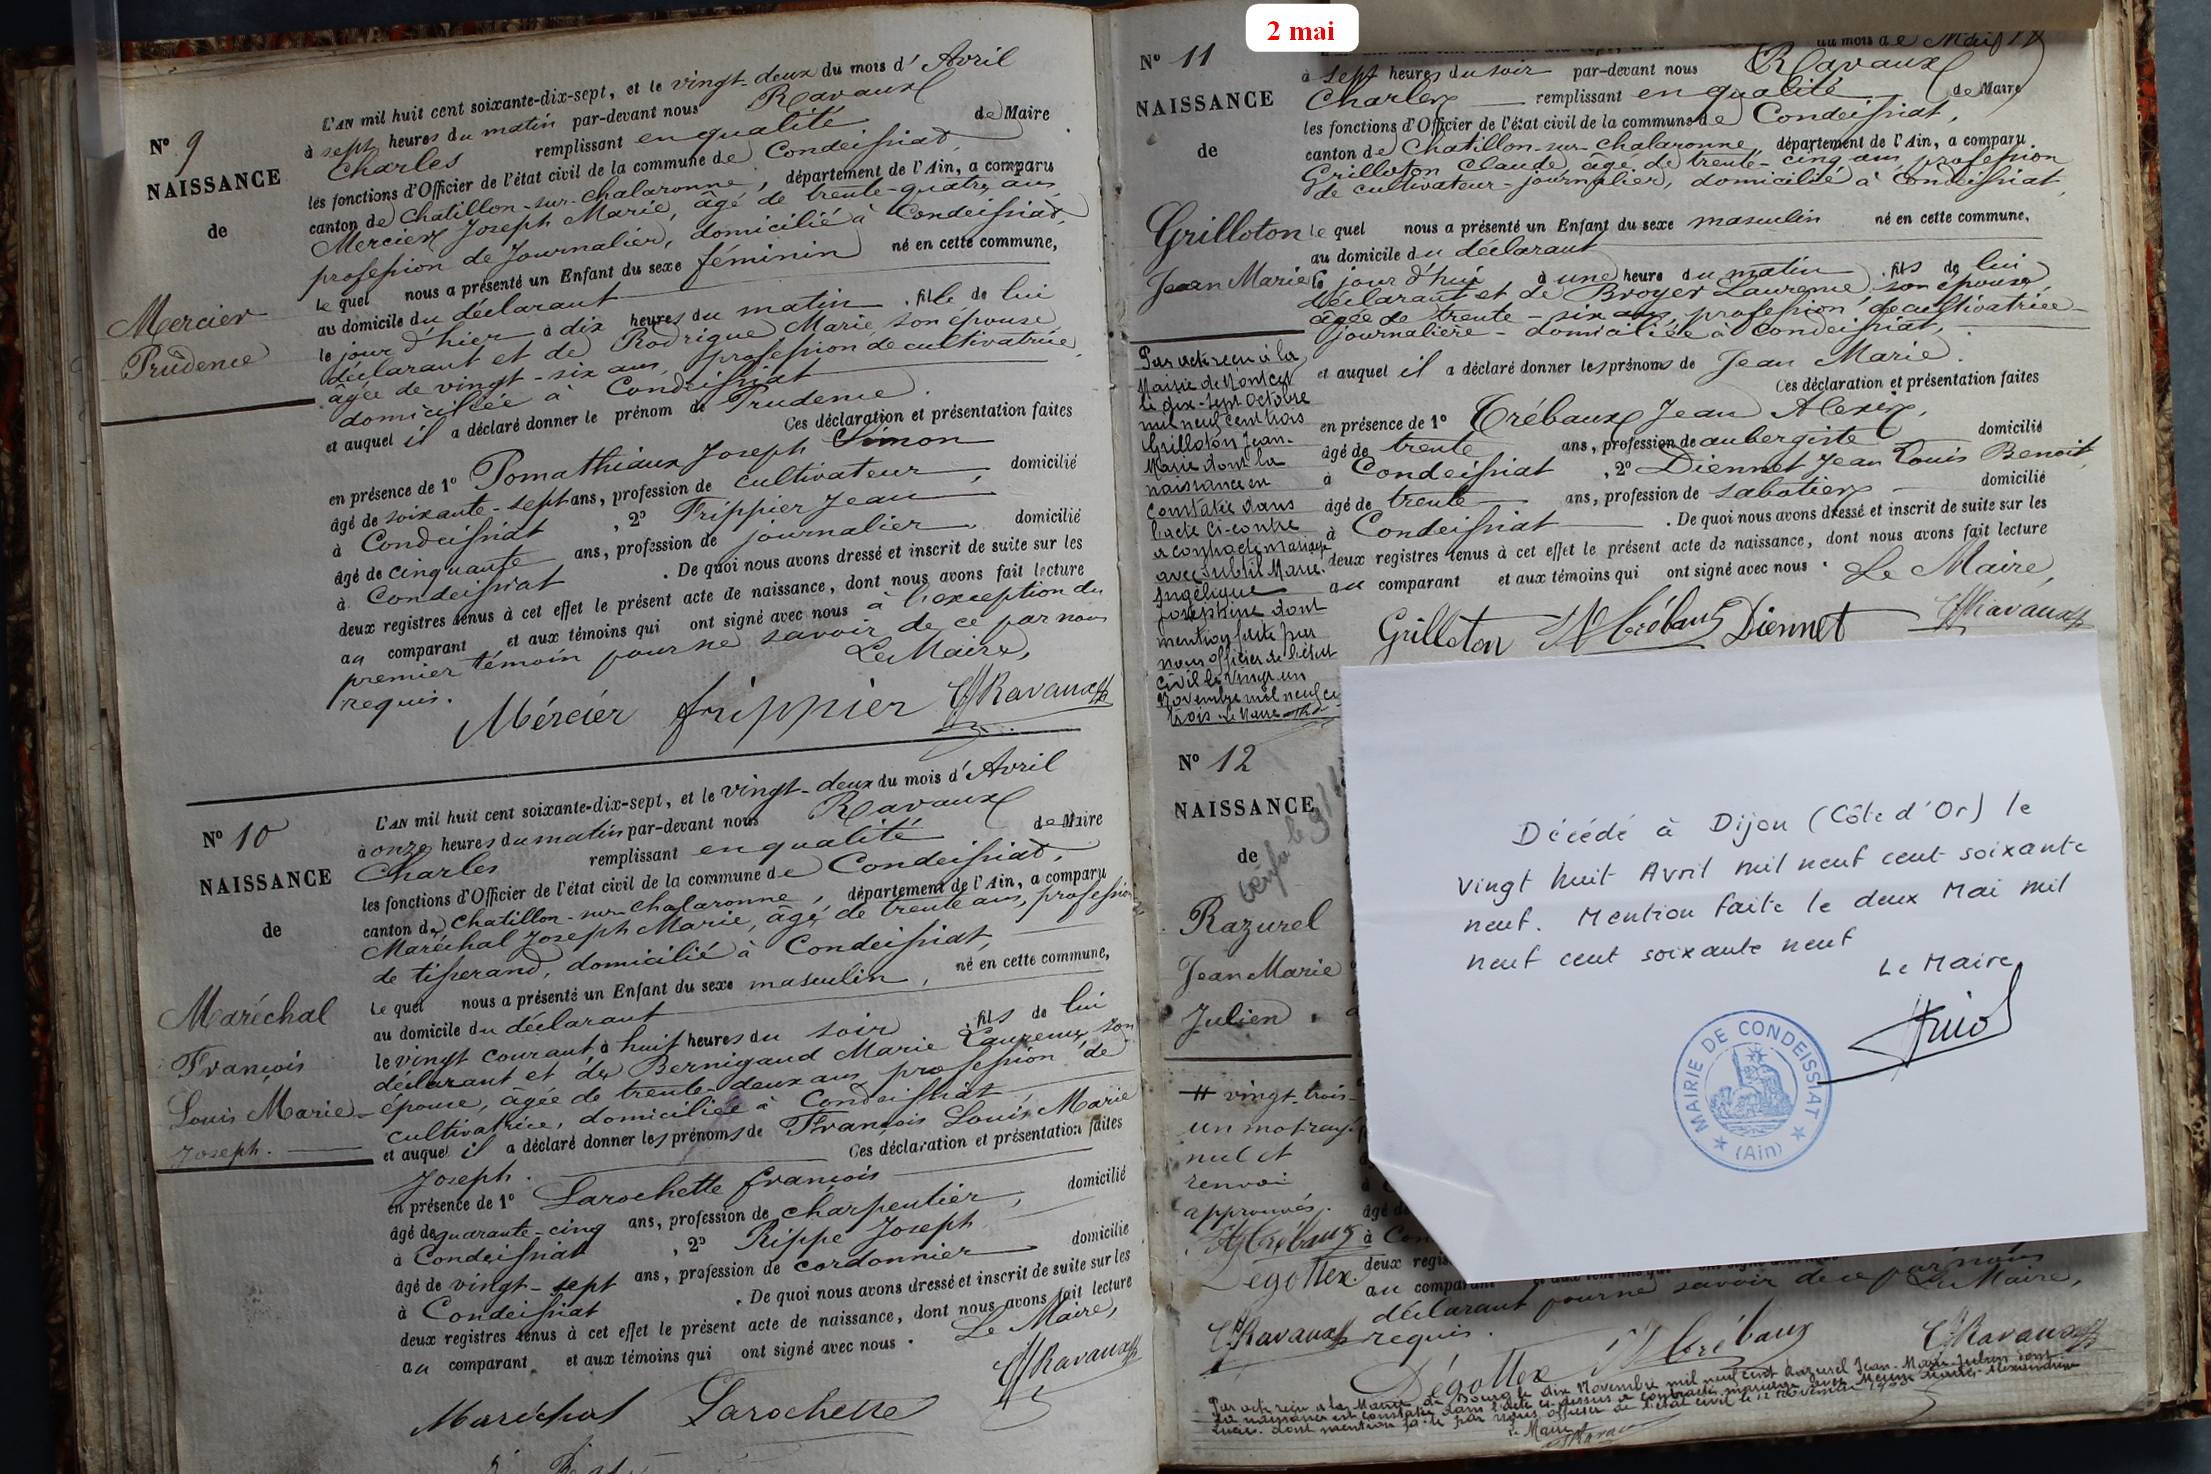 2 mai
N° 9
NAISSANCE
de
Mercier
Prudence
L'AN mil huit cent soixante-dix-sept, et le vingt-deux du mois d'Avril
à sept heures du matin par-devant nous Ravaux
Charles remplissant en qualité de Maire
les fonctions d'Officier de l'état civil de la commune de Condeissiat,
canton de Chatillon-sur-Chalaronne, département de l'Ain, a comparu
Mercier Joseph Marie, âgé de trente-quatre ans
profession de Journalier, domicilié à Condeissiat,
le quel nous a présenté un Enfant du sexe féminin né en cette commune,
au domicile du déclarant
le jour d'hier à dix heures du matin, fille de lui
déclarant et de Rodrigue Marie, son épouse
âgée de vingt-six ans, profession de cultivatrice,
domiciliée à Condeissiat
et auquel il a déclaré donner le prénom de Prudence.
Ces déclaration et présentation faites
en présence de 1° Pomathiaux Joseph Simon
âgé de soixante-sept ans, profession de cultivateur, domicilié
à Condeissiat, 2° Frippier Jean
âgé de cinquante ans, profession de journalier, domicilié
à Condeissiat. De quoi nous avons dressé et inscrit de suite sur les
deux registres tenus à cet effet le présent acte de naissance, dont nous avons fait lecture
au comparant et aux témoins qui ont signé avec nous à l'exception du
premier témoin pour ne savoir de ce par nous
requis. Le Maire,
Mércier frippier Ravaux
N° 10
NAISSANCE
de
Maréchal
François
Louis Marie-
Joseph.
L'AN mil huit cent soixante-dix-sept, et le vingt-deux du mois d'Avril
à onze heures du matin par-devant nous Ravaux
Charles remplissant en qualité de Maire
les fonctions d'Officier de l'état civil de la commune de Condeissiat,
canton de Chatillon-sur-Chalaronne, département de l'Ain, a comparu
Maréchal Joseph Marie, âgé de trente ans, profession
de tisserand, domicilié à Condeissiat,
le quel nous a présenté un Enfant du sexe masculin, né en cette commune,
au domicile du déclarant
le vingt courant à huit heures du soir, fils de lui
déclarant et de Bernigaud Marie Laurence, son
épouse, âgée de trente-deux ans profession de
cultivatrice, domiciliée à Condeissiat
et auquel il a déclaré donner les prénoms de François Louis Marie
Joseph. Ces déclaration et présentation faites
en présence de 1° Larochette françois
âgé de quarante-cinq ans, profession de charpentier, domicilié
à Condeissiat, 2° Rippe Joseph
âgé de vingt-sept ans, profession de cordonnier domicilié
à Condeissiat. De quoi nous avons dressé et inscrit de suite sur les
deux registres tenus à cet effet le présent acte de naissance, dont nous avons fait lecture
au comparant et aux témoins qui ont signé avec nous. Le Maire,
Ravaux
Maréchal Larochette
N° 11
NAISSANCE
de
Grilloton
Jean Marie
du mois de Mai
à sept heures du soir par-devant nous Ravaux
Charles remplissant en qualité de Maire
les fonctions d'Officier de l'état civil de la commune de Condeissiat,
canton de Chatillon-sur-Chalaronne, département de l'Ain, a comparu
Grilloton Claude, âgé de trente-cinq ans, profession
de cultivateur-journalier, domicilié à Condeissiat,
le quel nous a présenté un Enfant du sexe masculin né en cette commune,
au domicile du déclarant
le jour d'hui à une heure du matin, fils de lui
déclarant et de Broyer Laurence, son épouse,
âgée de trente-six ans, profession de cultivatrice-
journalière-domiciliée à Condeissiat,
et auquel il a déclaré donner les prénoms de Jean Marie.
Ces déclaration et présentation faites
en présence de 1° Trébaux Jean Alexix,
âgé de trente ans, profession de aubergiste domicilié
à Condeissiat, 2° Diennet Jean Louis Benoit,
âgé de trente ans, profession de sabotier domicilié
à Condeissiat. De quoi nous avons dressé et inscrit de suite sur les
deux registres tenus à cet effet le présent acte de naissance, dont nous avons fait lecture
au comparant et aux témoins qui ont signé avec nous. Le Maire,
Grilloton Trébaux Diennet Ravaux
Par acte reçu à la
Mairie de Montcet
le dix-sept Octobre
mil neuf cent trois
Grilloton Jean-
Marie dont la
naissance en
constatée dans
l'acte ci-contre
a contracté mariage
avec Subtil Marie
Angélique
Joséphine dont
mention faite par
nous officier de l'état
civil le vingt un
Novembre mil neuf ce
trois Le Maire
N° 12
NAISSANCE
de
Razurel
Jean Marie
Julien
# vingt-trois-
un mot rayé
nul et
renvoi
approuvés.
Trébaux
Degottex
Ravaux
Décédé à Dijon (Côte d'Or) le
vingt huit Avril mil neuf cent soixante
neuf. Mention faite le deux Mai mil
neuf cent soixante neuf
Le Maire
MAIRIE DE CONDEISSIAT
(Ain)
âgé de
à Con
deux regis
au comparant
déclarant pour ne savoir de ce par nous
requis. Le Maire,
Dégottex Trébaux Ravaux
Par acte reçu à la Mairie de Bourg le dix Novembre mil neuf cent Razurel Jean-Marie-Julien dont
la naissance est constatée dans l'acte ci-dessus a contracté mariage avec Marie Alexandrine
dont mention faite par nous officier de l'état civil le 12 novembre 1900
Le Maire